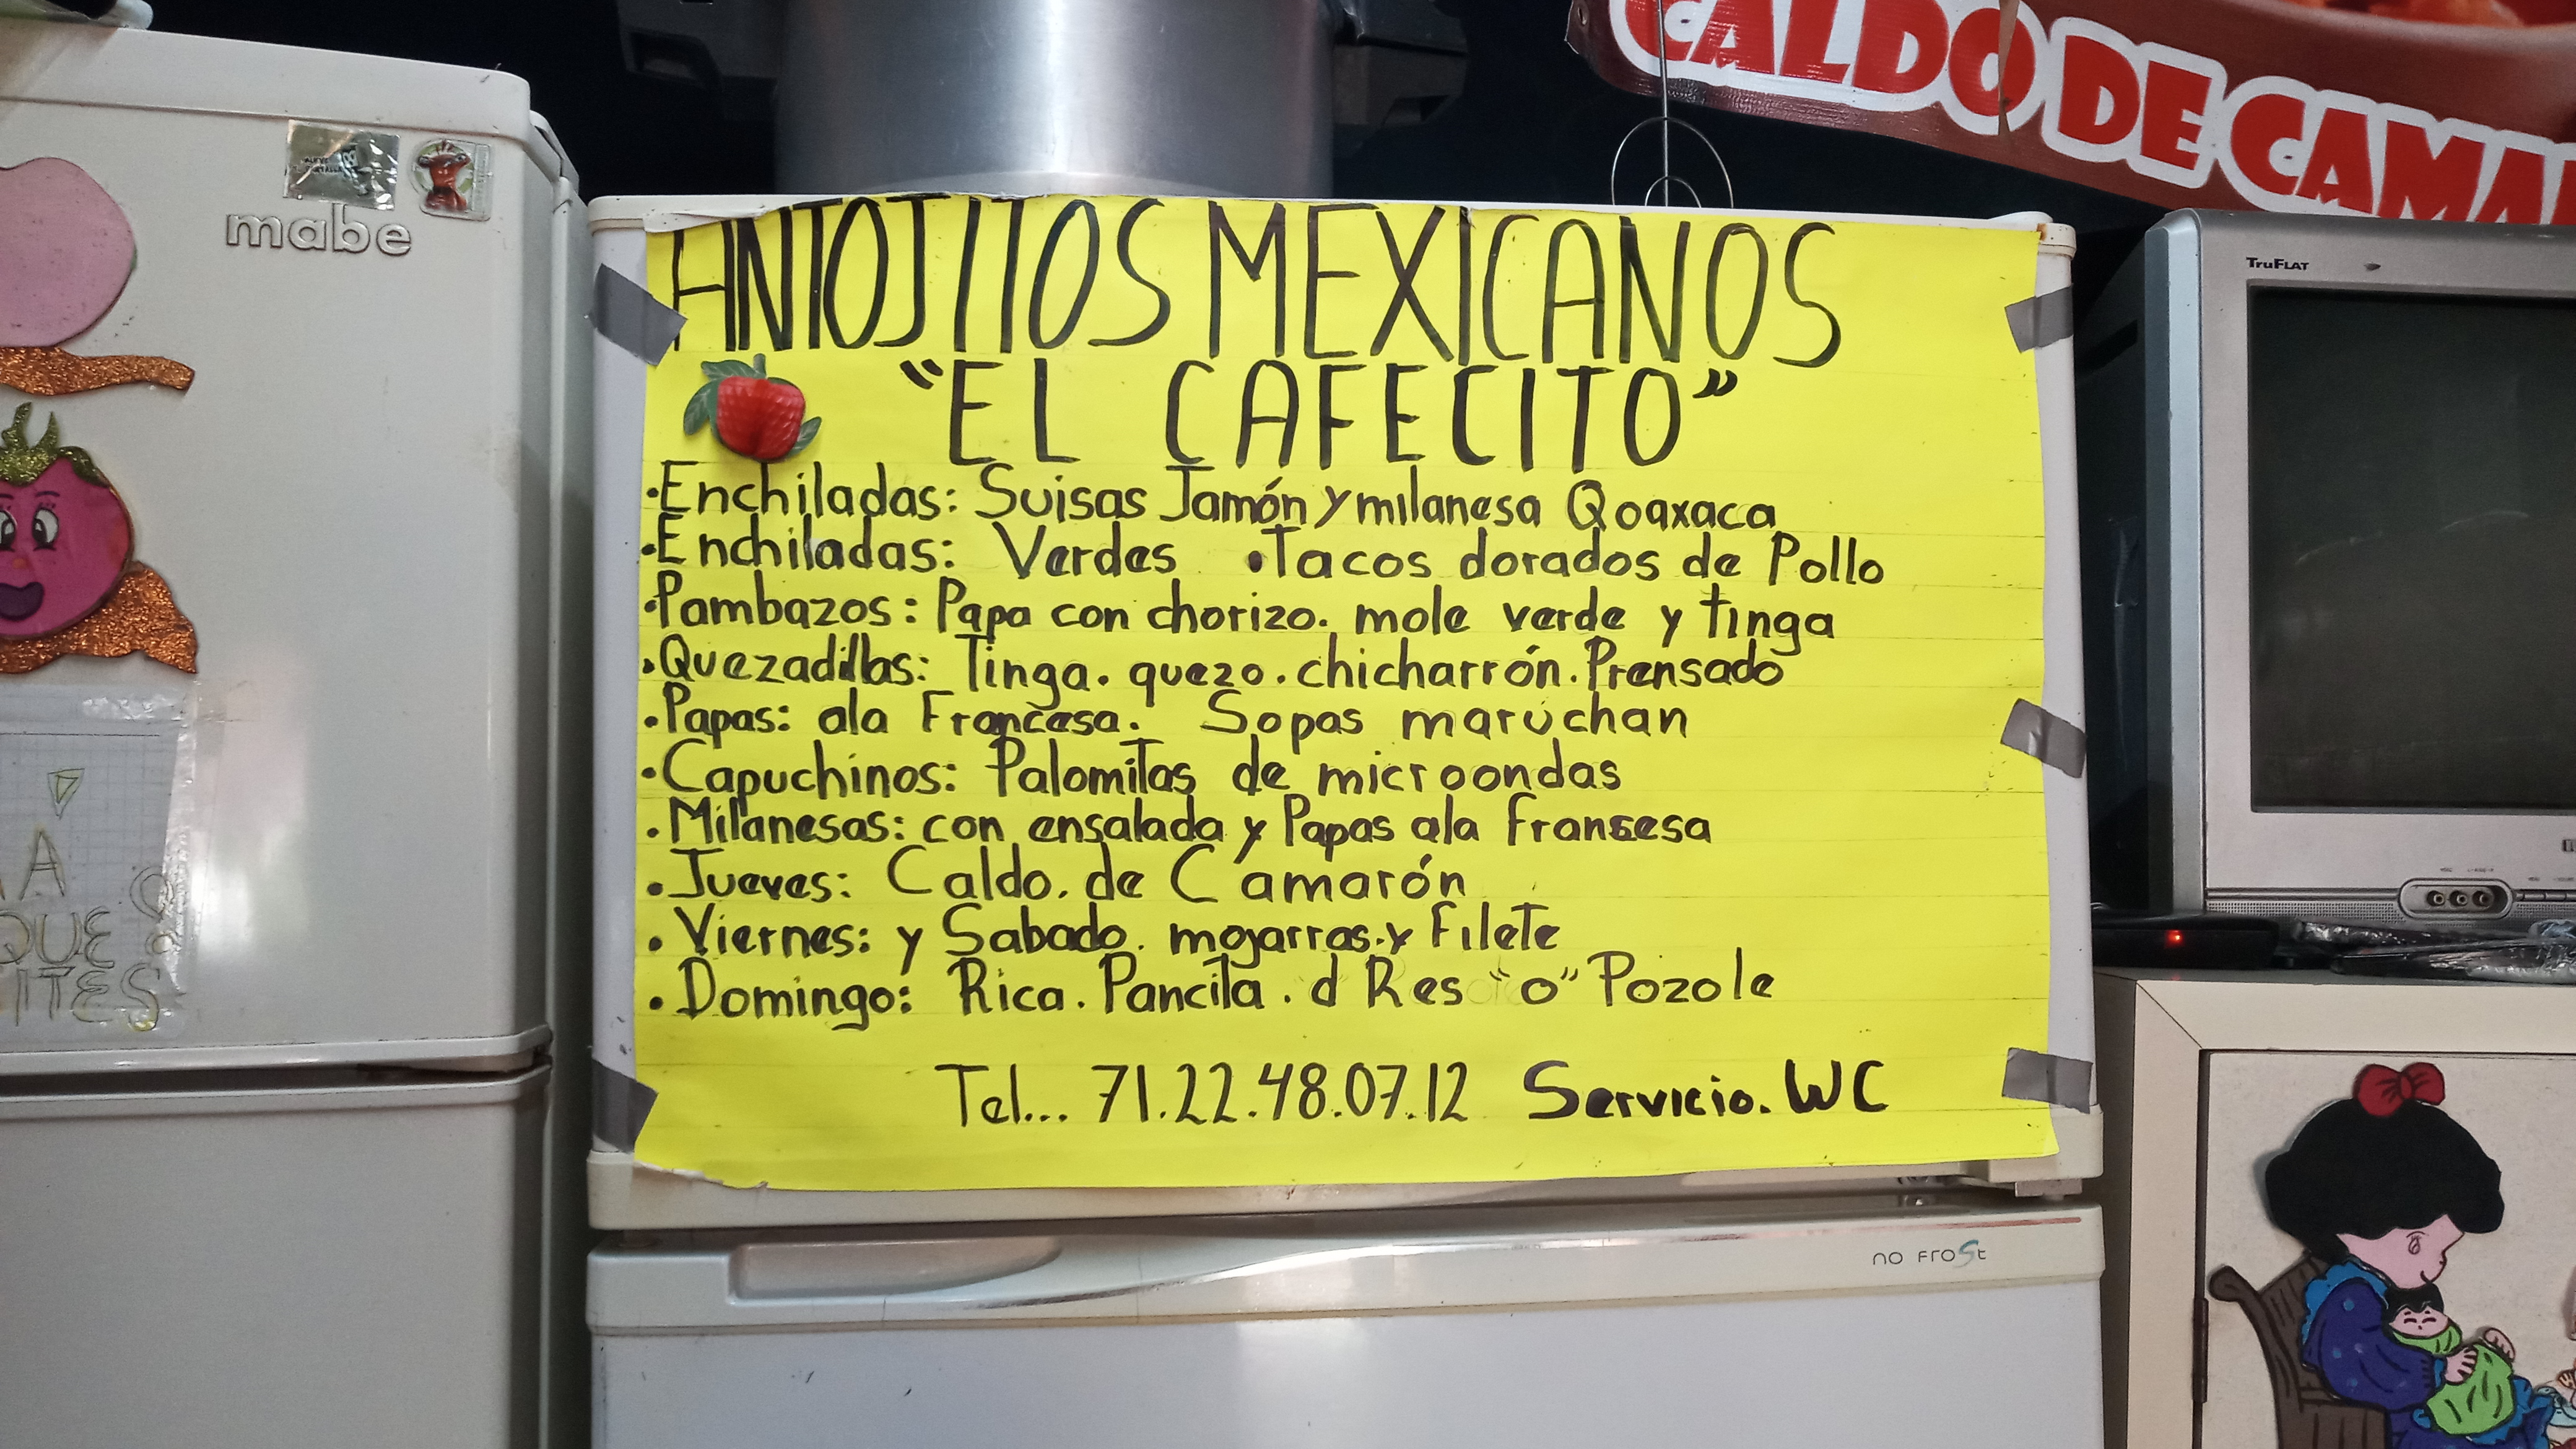 CALDO DE CAMA
mabe
TruFLAT
ANTOJITOS MEXICANOS
"EL CAFECITO"
•Enchiladas: Suisas Jamón y milanesa Qoaxaca
•Enchiladas: Verdes •Tacos dorados de Pollo
•Pambazos: Papa con chorizo. mole verde y tinga
•Quezadillas: Tinga. quezo. chicharrón. Prensado
•Papas: ala Francesa. Sopas maruchan
•Capuchinos: Palomitas de microondas
•Milanesas: con ensalada y Papas ala fransesa
•Jueves: Caldo. de Camarón
•Viernes: y Sabado. mojarras. y Filete
•Domingo: Rica. Pancita. d Res "o" Pozole
Tel... 71.22.48.07.12 Servicio. WC
A
QUE
ITES
no frost